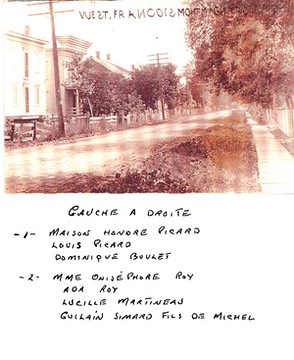 WEST, FRANCOIS MONTMAGNY
GAUCHE A DROITE
-1- MAISON HONORE PICARD
LOUIS PICARD
DOMINIQUE BOULET
-2- MME ONISÉPHORE ROY
ADA ROY
LUCILLE MARTINEAU
GHILAIN SIMARD FILS DE MICHEL